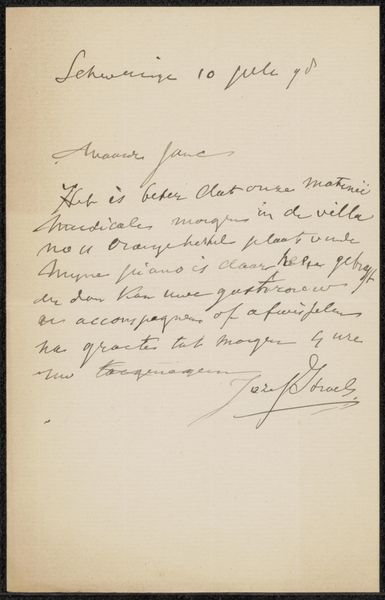 10 july 98
Waarde Jane
Het is beter dat onze matineé
Musicales morgen in de villa
no 11 Oranjehotel plaats vinde
Myne piano is daar heen gebragt
en dan kan uwe
en accompagneren of afwisselen
na groetes tot morgen 4 ure
uw toegenegen
Jozef Israels